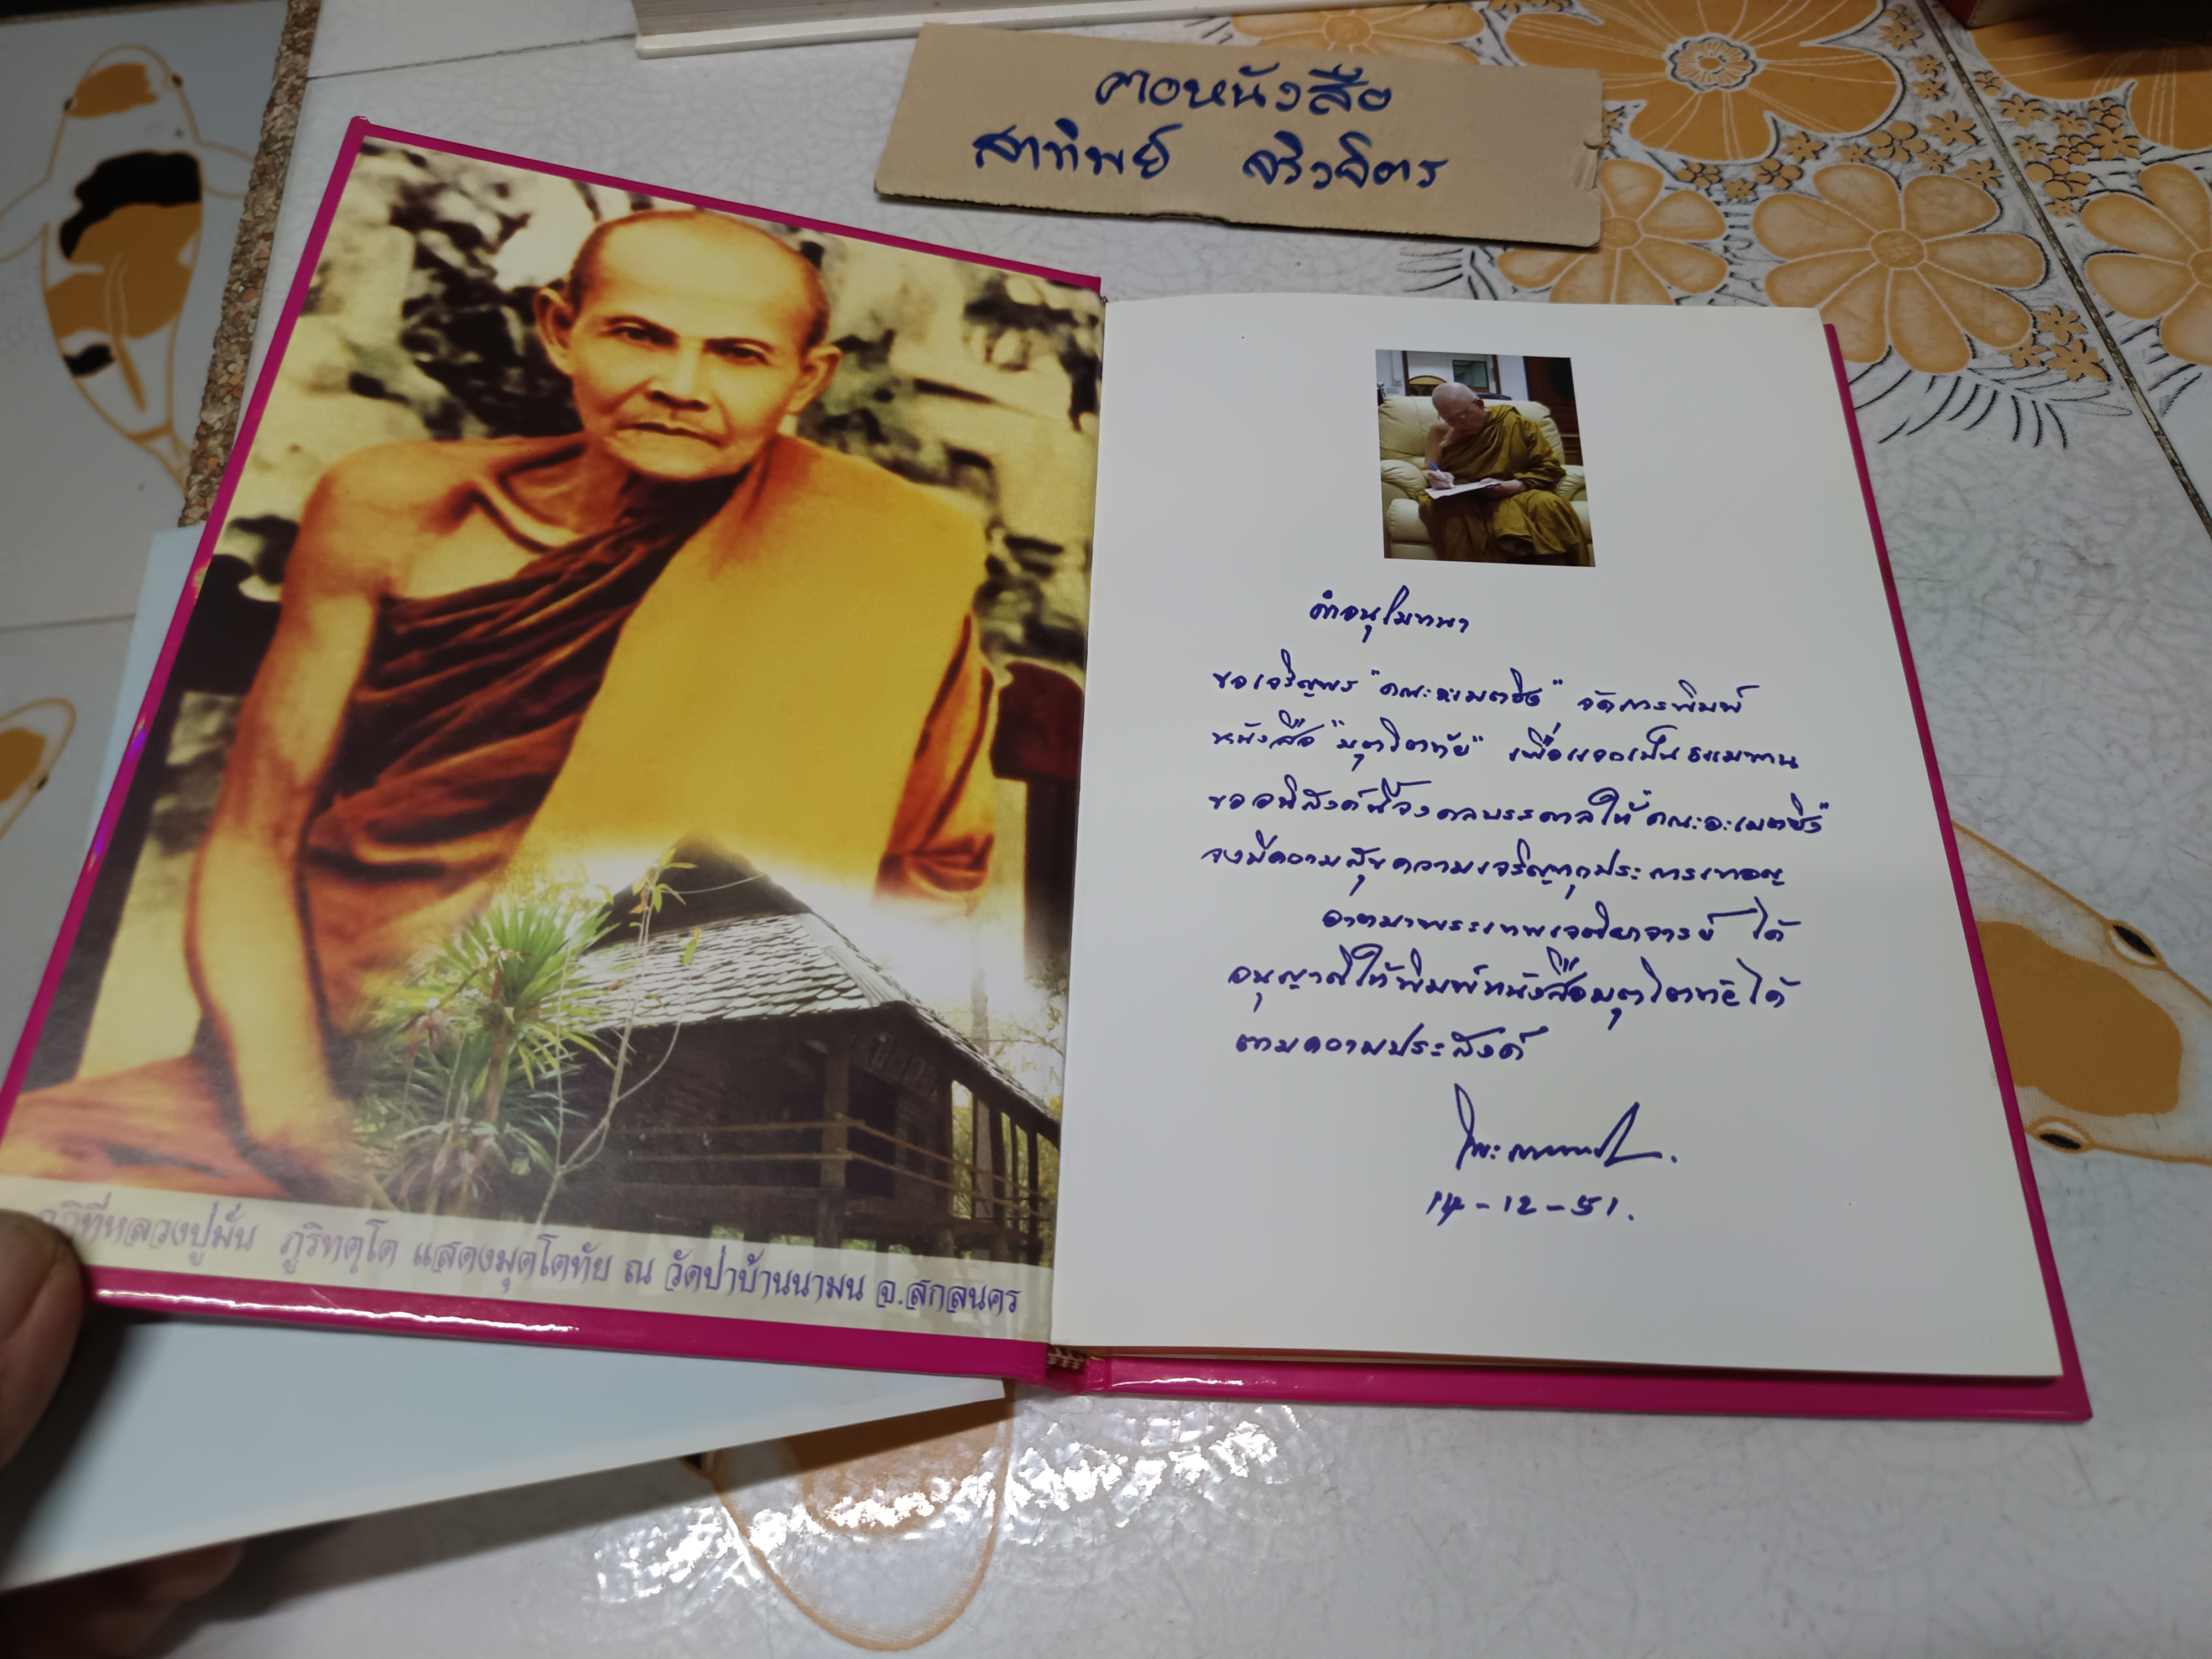 คอหนังสือ
สาทิพย์ จริงจิตร
กุฏิที่หลวงปู่มั่น ภูริทตฺโต แสดงมุตโตทัย ณ วัดป่าบ้านนามน จ.สกลนคร
คำอนุโมทนา
ขอเจริญพร "คณะอะเมตซิ่ง" จัดการพิมพ์
หนังสือ "มุตฺโตทัย" เพื่อแจกเป็นธรรมทาน
ขออนิสงค์นี้จงดลบรรดาลให้ "คณะอะเมตซิ่ง"
จงมีความสุขความเจริญทุกประการเทอญ
อาตมาพระเทพเจติยาจารย์ ได้
อนุญาติให้พิมพ์หนังสือมุตฺโตทัยได้
ตามความประสงค์
14-12-51.